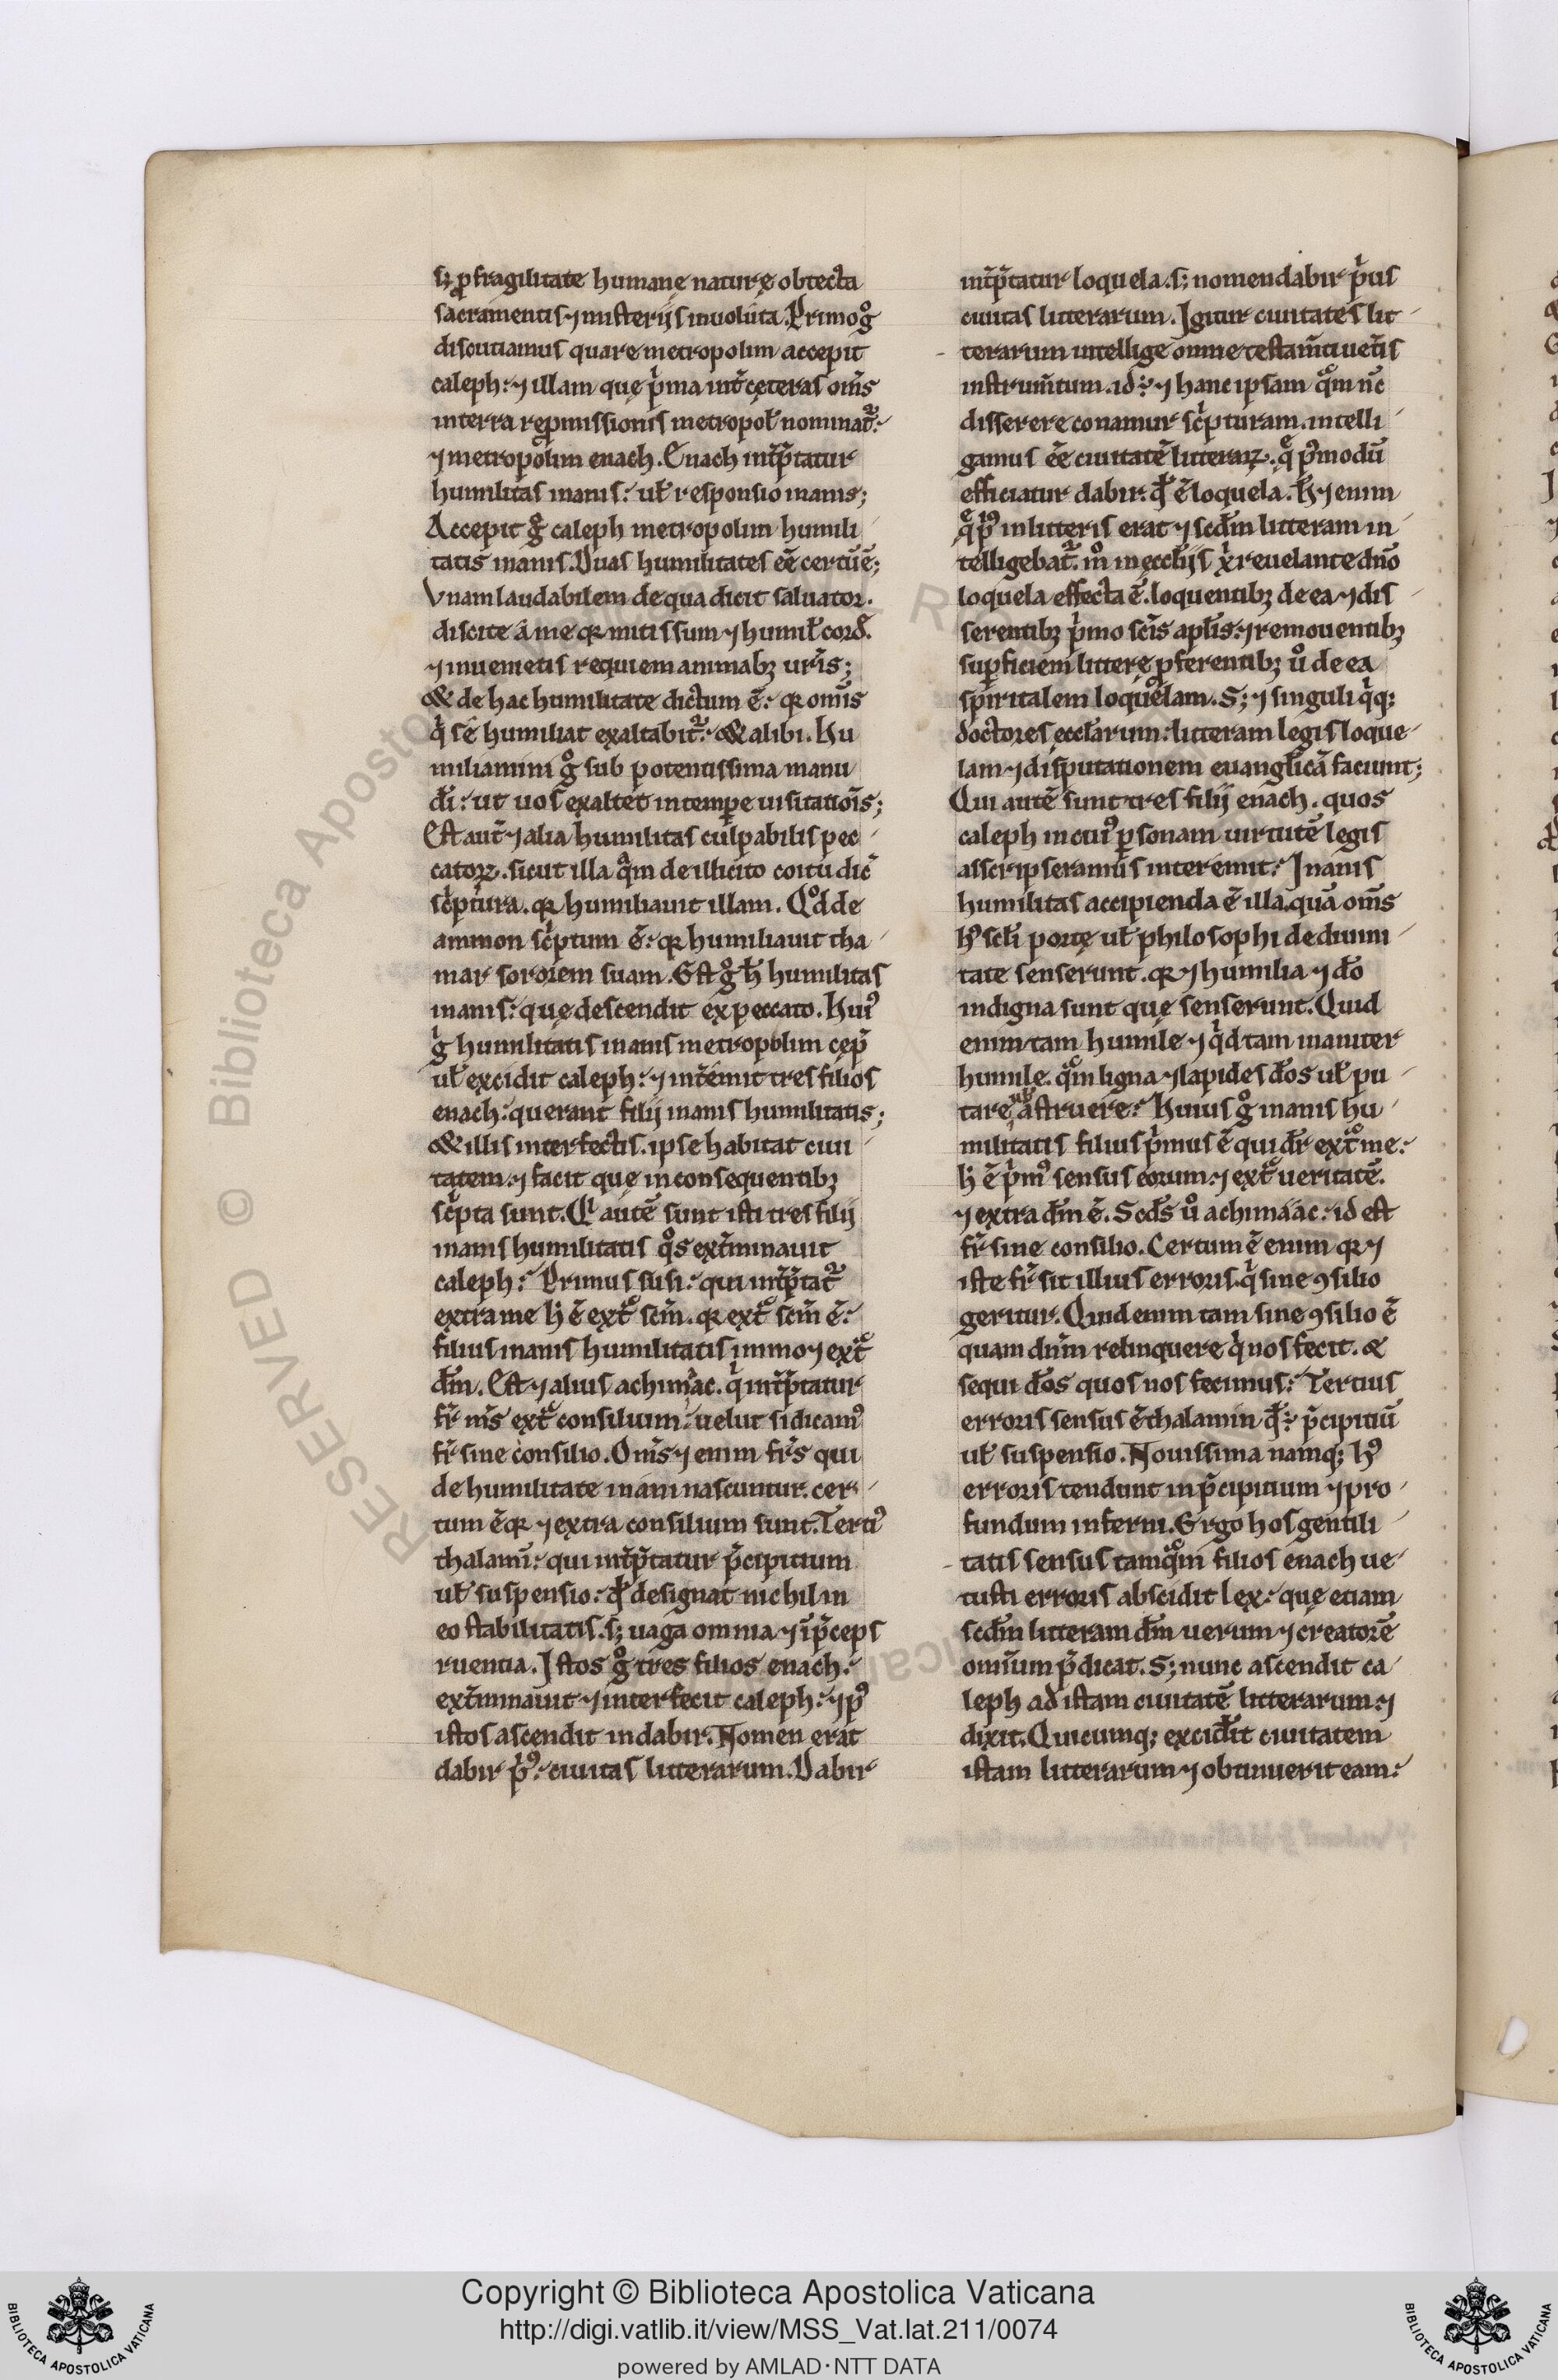 sꝫ ꝓ fragilitate humanę naturę obtecta
sacramentis ⁊ misterijs inuoluta. Primo gͦ
discutiamus quare metropolim accepit
caleph: ⁊ illam quę pͥma int̄ cęteras om̄s
in terra repꝓmissionis metropol̄ nominat᷑:
⁊ metropolim enach. Enach int̄p̄tatur
humilitas inanis: ul̄ responsio inanis;
Accepit gͦ caleph metropolim humili
tatis inanis. Duas humilitates eē certū ē;
Vnam laudabilem de qua dicit saluator.
discite a me qꝛ mitis sum ⁊ humil̄ cord̄.
⁊ inuenietis requiem animabꝫ ur̄is;
& de hac humilitate dictum ē: qꝛ om̄is
qͥ sē humiliat exaltabit᷑: & alibi. Hu
miliamini gͦ sub potentissima manu
dī: ut uos exaltet in tempꝑe uisitatiōis;
Est aut̄ ⁊ alia humilitas culpabilis pec
catoꝝ. sicut illa qͣm de illicito coitu dic̄
sc̄ptura. qꝛ humiliauit illam. Qͦd de
ammon sc̄ptum ē: qꝛ humiliauit tha
mar sororem suam. Est gͦ h̄ humilitas
inanis: quę descendit ex peccato. Huiꝰ
gͥ humilitatis inanis metropolim cęp̄
ul̄ excidit caleph: ⁊ int̄emit tres filios
enach: qui erant filij inanis humilitatis;
& illis interfectis. ipse habitat ciui
tatem ⁊ facit quę in consequentibꝫ
sc̄pta sunt. Qͥ autē sunt isti tres filij
inanis humilitatis qͦs ext̄minauit
caleph: Primus susi: qui int̄p̄tat᷑
extra me h̄ ē extͣ sc̄m. qꝛ extͣ sc̄m ē:
filius inanis humilitatis immo ⁊ extͣ
dm̄. Est ⁊ alius achimac. qͥ int̄p̄tatur
fr̄ m̄s extͣ consilium: uelut si dicamꝰ
fr̄ sine consilio. Om̄s ⁊enim fr̄s qui
de humilitate inani nascuntur. cer
tum ē qꝛ ⁊ extra consilium sunt. Tertiꝰ
thalami: qui int̄p̄tatur p̄cipitium
ul̄ suspensio: qđ designat nichil in
eo stabilitatis. sꝫ uaga omnia ⁊ ī p̄ceps
ruentia. Istos gͦ tres filios enach:
ext̄minauit ⁊ interfecit caleph: ⁊ pꝰ
istos ascendit in dabir. Nomen erat
dabir pͥꝰ: ciuitas litterarum. Dabir
int̄p̄tatur loquela. sꝫ nomen dabir pͥus
ciuitas litterarum. Igitur ciuitates lit
terarum intellige omne testam̄ti uet̄is
instrum̄tum. id ÷ ⁊ hanc ipsam qͣm nc̄
disserere conamur sc̄pturam. intelli
gamus eē ciuitatē litteraꝝ. qͣ pꝰmodū
efficiatur dabir. qđ ē loquela. H̄ ⁊enim
qͣ pͥꝰ in litteris erat ⁊ scđm litteram in
telligebat᷑. mͦ in ęccl̄ijs xp̄o reuelante dn̄o
loquela effecta ē. loquentibꝫ de ea ⁊ dis
serentibꝫ pͥmo sc̄is apl̄is: ⁊ remouentibꝫ
suꝑficiem litterę ꝓferentibꝫ ūo de ea
spiritalem loquelam. Sꝫ ⁊ singuli qͥqꝫ
doctores eccl̄arum: litteram legis loque
lam ⁊ disputationem euangl̄icā faciunt;
Qui autē sunt tres filij enach. quos
caleph in cuiꝰ ꝑsonam uirtutē legis
asscripseramus interemit: Inanis
humilitas accipienda ē illa. quā om̄s
hꝰ scl̄i poetę ul̄ philosophi de diuini
tate senserunt. qꝛ ⁊ humilia ⁊ dō
indigna sunt quę senserunt. Quid
enim tam humile ⁊ qͥd tam inaniter
humile. qͣm ligna ⁊ lapides dōs ul̄ pu
tare ul̄ astruere: Huius gͦ inanis hu
militatis filius pͥmus ē qui dr̄ extͣ me:
h̄ ē pͥmꝰ sensus eorum ⁊ extͣ ueritatē.
⁊ extra dm̄ ē. Scds̄ ūo achimaac: id est
fr̄ sine consilio. Certum ē enim qꝛ ⁊
iste fr̄ sit illius erroris. qͥ sine ꝯsilio
geritur. Quid enim tam sine ꝯsilio ē
quam dn̄m relinquere qͥ nos fecit. &
sequi dōs quos nos fecimus: Tertius
erroris sensus ē thalamin qđ ÷ p̄cipitiū
ul̄ suspensio. Nouissima namqꝫ hꝰ
erroris tendunt in p̄cipitium ⁊ pro
fundum inferni. Ergo hos gentili
tatis sensus tamqͣm filios enach ue
tusti erroris abscidit lex: quę etiam
scđm litteram dm̄ uerum ⁊ creatorē
omīum p̄dicat. Sꝫ nunc ascendit ca
leph ad istam ciuitatē litterarum ⁊
dixit. Quicumqꝫ excidit ciuitatem
istam litterarum ⁊ obtinuerit eam:
Copyright © Biblioteca Apostolica Vaticana
http://digi.vatlib.it/view/MSS_Vat.lat.211/0074
powered by AMLAD·NTT DATA